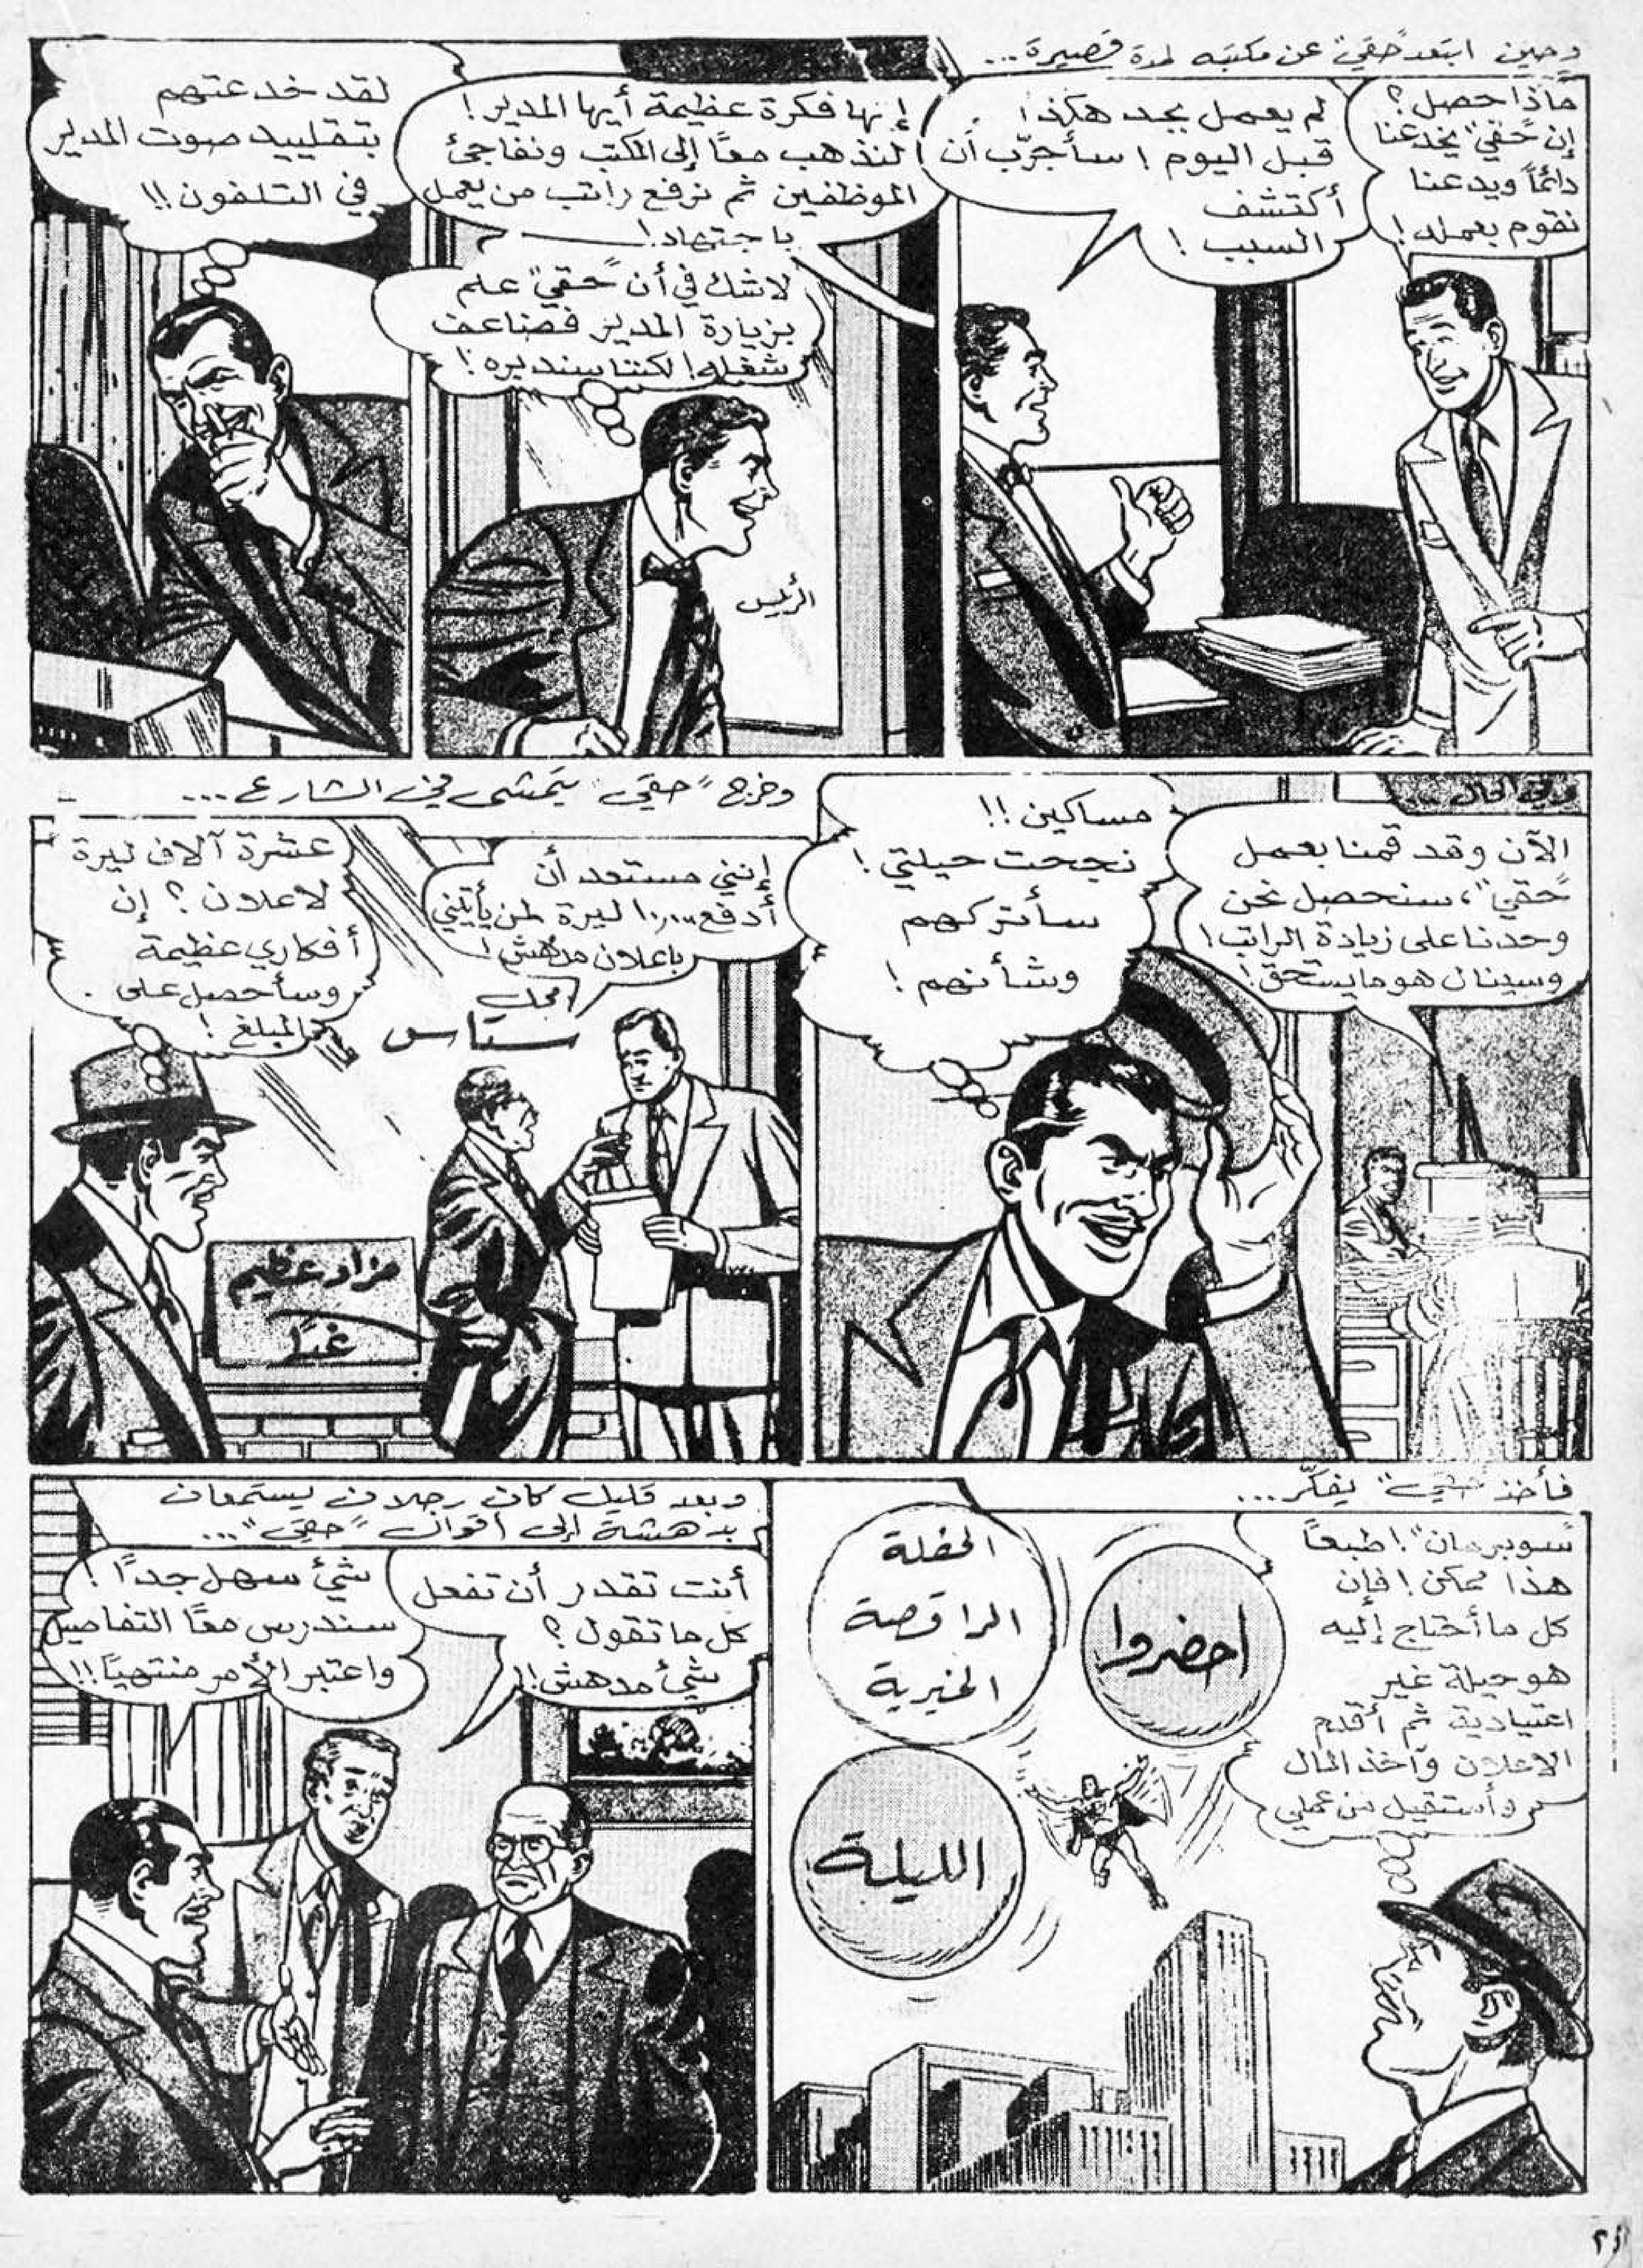 وحين ابتعد "حقي" عن مكتبه لمدة قصيرة...
ماذا حصل؟
إن "حقي" يخدعنا
دائماً ويدعنا
نقوم بعمله!
لم يعمل بجد هكذا
قبل اليوم! سأجرّب أن
أكتشف
السبب!
إنها فكرة عظيمة أيها المدير!
لنذهب معًا إلى المكتب ونفاجئ
الموظفين ثم نرفع راتب من يعمل
باجتهاد!
لا شك في أن "حقي" علم
بزيارة المدير فضاعف
شغله! لكننا سنديره!
الرئيس
لقد خدعتهم
بتقليد صوت المدير
في التلفون!!
وفي الحال...
الآن وقد قمنا بعمل
"حقي"، سنحصل نحن
وحدنا على زيادة الراتب!
وسينال هو ما يستحق!
مساكين!!
نجحت حيلتي!
سأتركهم
وشأنهم!
وخرج "حقي" يتمشى في الشارع...
إنني مستعد أن
أدفع ١٠,٠٠٠ ليرة لمن يأتيني
باعلان مدهش!
عشرة آلاف ليرة
لاعلان؟ إن
أفكاري عظيمة
وسأحصل على
المبلغ!
محل
ستاس
مزاد عظيم
غدًا
فأخذ "حقي" يفكّر...
"سوبرمان"! طبعاً
هذا ممكن! فإن
كل ما أحتاج إليه
هو حيلة غير
اعتيادية ثم أقدم
الاعلان وآخذ المال
وأستقيل من عملي
احضروا
الحفلة
الراقصة
الخيرية
الليلة
وبعد قليل كان رجلان يستمعان
بدهشة إلى أقوال "حقي"...
أنت تقدر أن تفعل
كل ما تقول؟
شيئ مدهش!!
شيئ سهل جدًا!
سندرس معًا التفاصيل
واعتبر الأمر منتهيًا!!